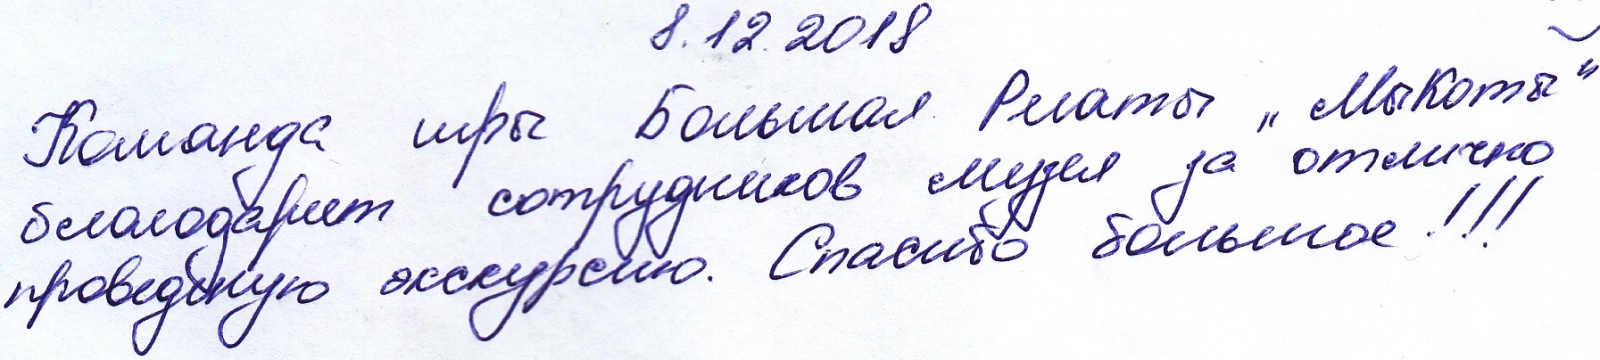 8.12.2018
Команда игры Большая Регаты „МыКоты"
благодарит сотрудников музея за отлично
проведёную экскурсию. Спасибо большое!!!